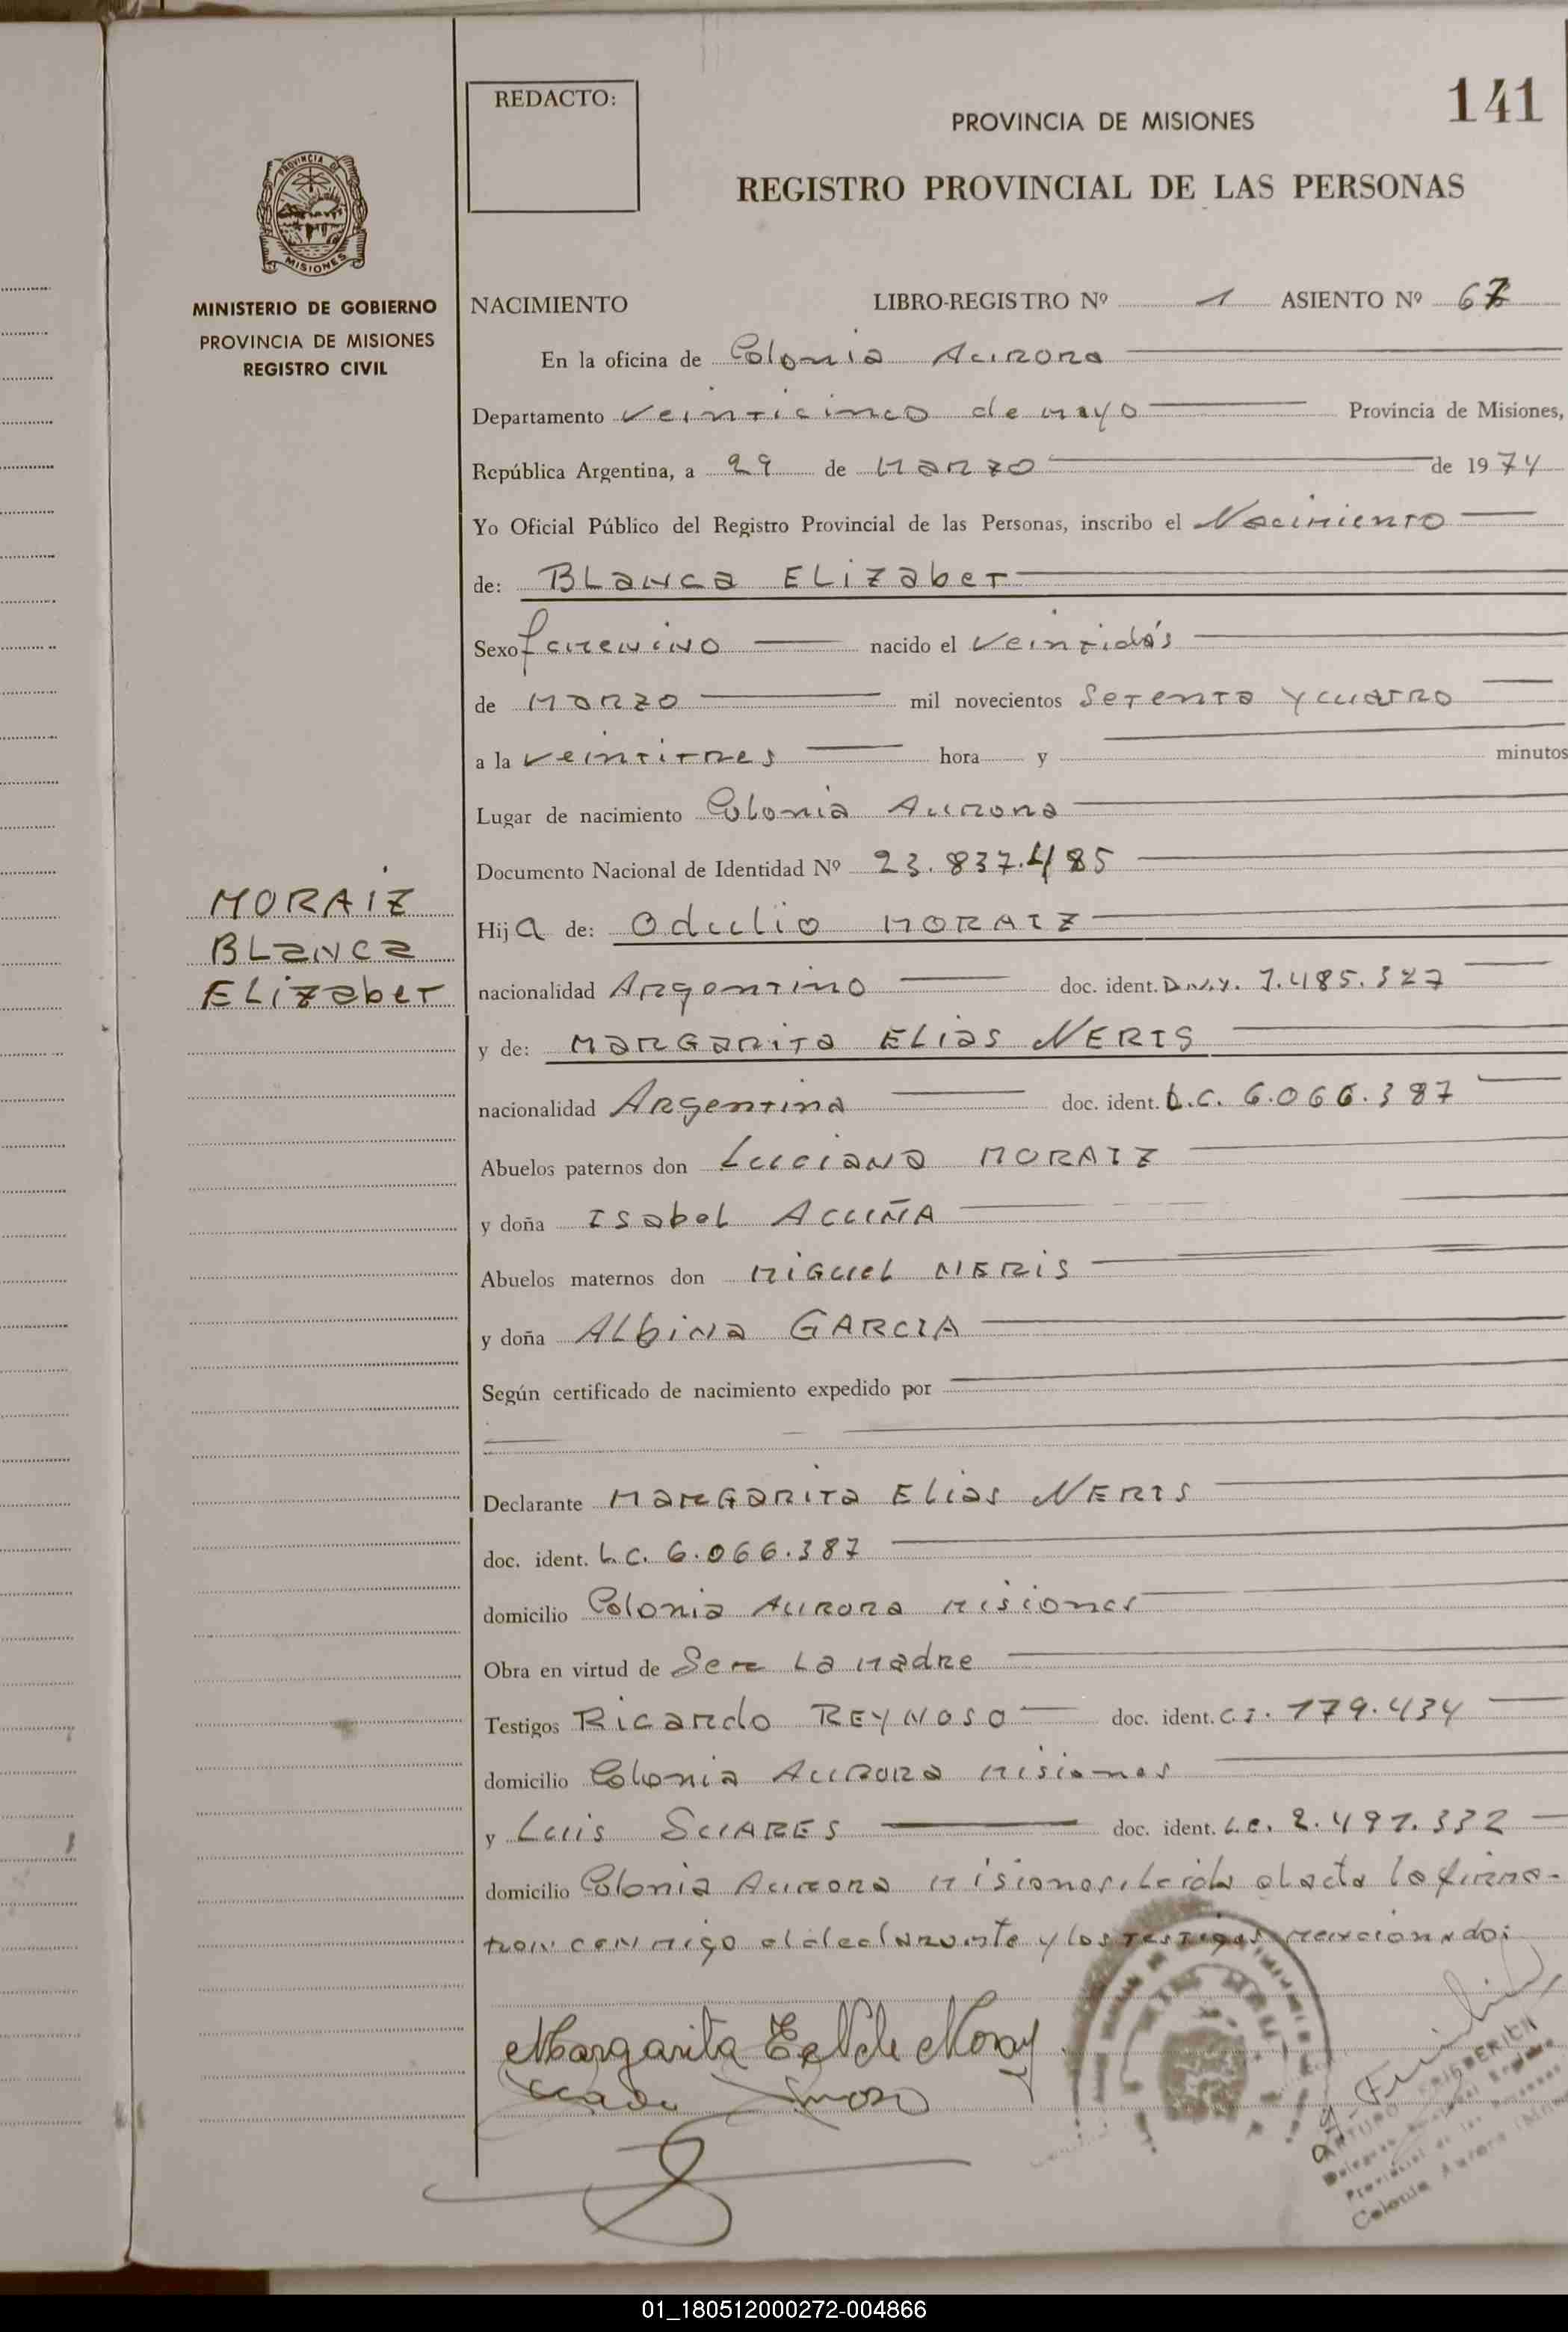 141
REDACTO:
PROVINCIA DE MISIONES
REGISTRO PROVINCIAL DE LAS PERSONAS
PROVINCIA DE
MISIONES
MINISTERIO DE GOBIERNO
PROVINCIA DE MISIONES
REGISTRO CIVIL
NACIMIENTO LIBRO-REGISTRO Nº 1 ASIENTO Nº 67
En la oficina de Colonia Aurora
Departamento veinticinco de mayo Provincia de Misiones,
República Argentina, a 29 de Marzo de 1974
Yo Oficial Público del Registro Provincial de las Personas, inscribo el Nacimiento
de: BLanca ELizabet
Sexo femenino nacido el veintidós
de Marzo mil novecientos Setenta y cuatro
a la veintitres hora y minutos
Lugar de nacimiento Colonia Aurora
Documento Nacional de Identidad Nº 23.837.485
MORAIZ
BLanca
ELizabet
Hija de: Odulio MORAIZ
nacionalidad Argentino doc. ident. D.N.Y. 7.485.327
y de: Margarita ELias NERIS
nacionalidad Argentina doc. ident. L.C. 6.066.387
Abuelos paternos don Luciano MORAIZ
y doña Isabel ACUÑA
Abuelos maternos don Miguel NERIS
y doña ALbina GARCIA
Según certificado de nacimiento expedido por
Declarante Margarita Elias NERIS
doc. ident. L.C. 6.066.387
domicilio Colonia Aurora Misiones
Obra en virtud de Ser La Madre
Testigos Ricardo REYNOSO doc. ident. C.I. 179.434
domicilio Colonia Aurora Misiones
y Luis SUARES doc. ident. L.E. 2.497.332
domicilio Colonia Aurora Misiones, Leida el acta la firma-
ron conmigo el declarante y los testigos mencionados
Margarita E de N de Moray
ARTURO FRIEDERICH
Provincial de las Personas
Colonia Aurora
01_180512000272-004866